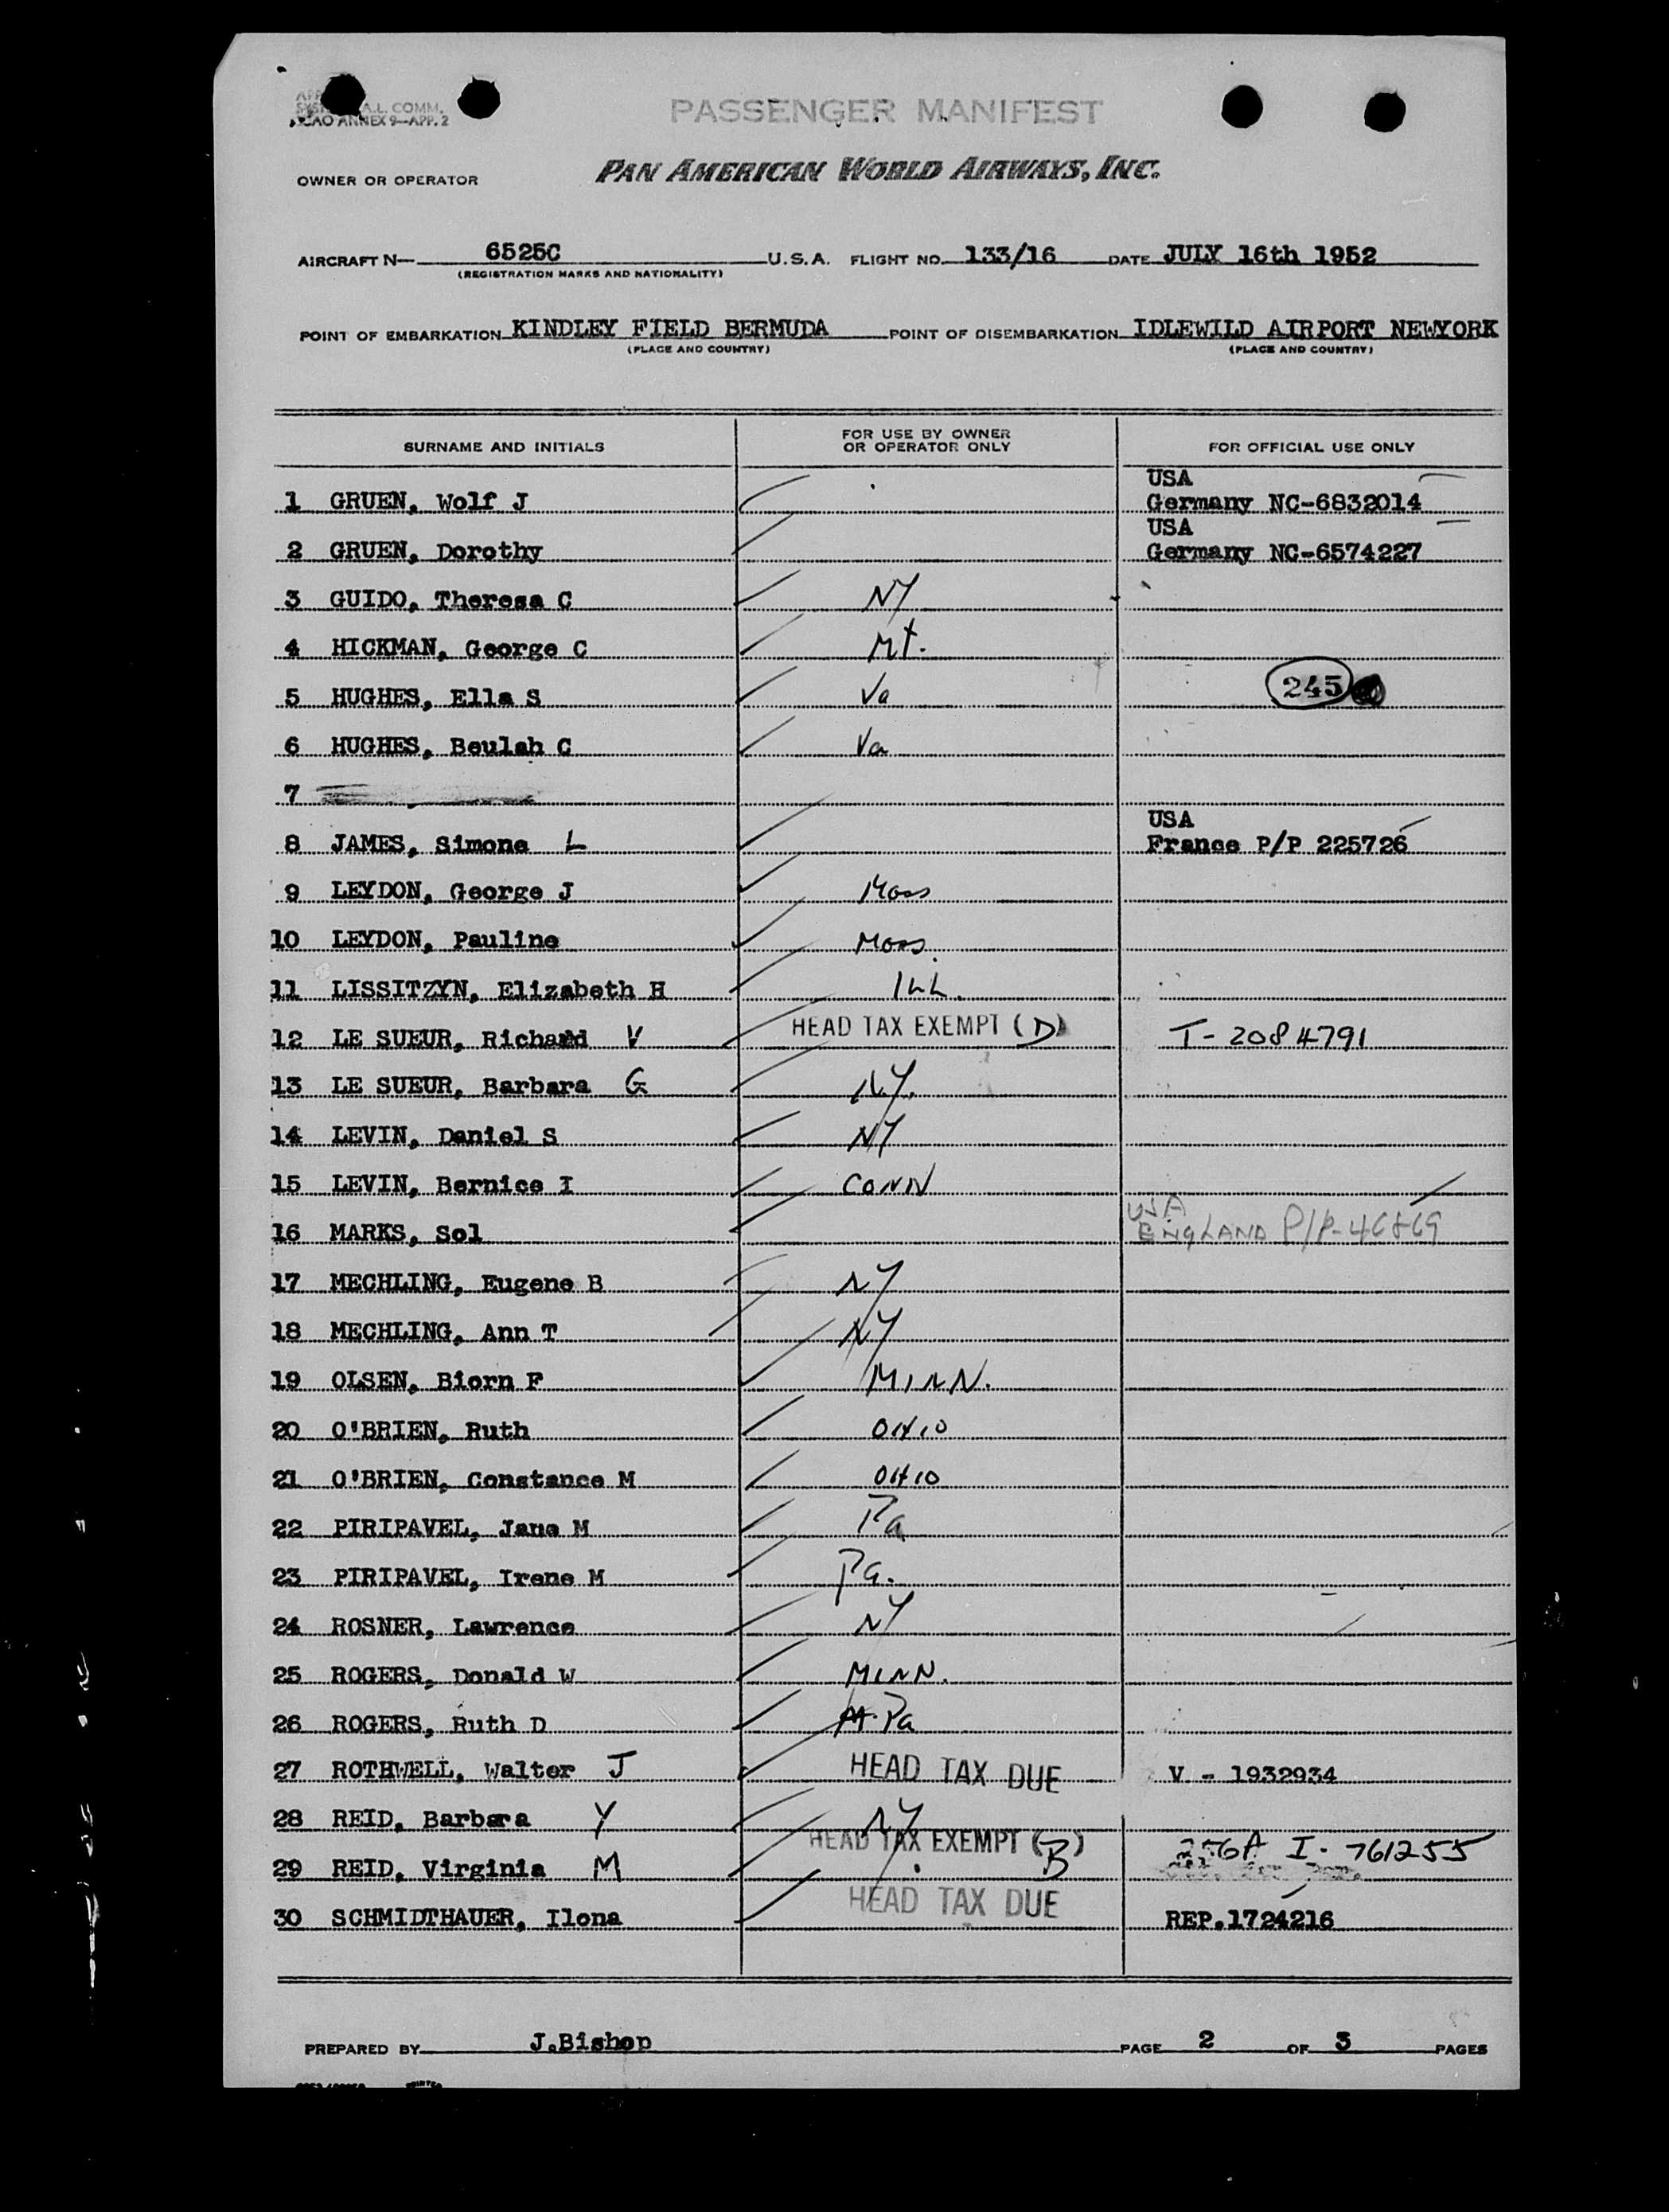 A.L. COMM.
ICAO ANNEX 9—APP. 2
PASSENGER MANIFEST
OWNER OR OPERATOR PAN AMERICAN WORLD AIRWAYS, INC.
AIRCRAFT N— 6525C U.S.A. FLIGHT NO. 133/16 DATE JULY 16th 1952
(REGISTRATION MARKS AND NATIONALITY)
POINT OF EMBARKATION KINDLEY FIELD BERMUDA POINT OF DISEMBARKATION IDLEWILD AIRPORT NEWYORK
(PLACE AND COUNTRY) (PLACE AND COUNTRY)
SURNAME AND INITIALS FOR USE BY OWNER OR OPERATOR ONLY FOR OFFICIAL USE ONLY
USA
1 GRUEN, Wolf J Germany NC-6832014
USA
2 GRUEN, Dorothy Germany NC-6574227
3 GUIDO, Theresa C NY
4 HICKMAN, George C Mt.
5 HUGHES, Ella S Va 245
6 HUGHES, Beulah C Va
7
USA
8 JAMES, Simone L France P/P 225726
9 LEYDON, George J Mass
10 LEYDON, Pauline Mass.
11 LISSITZYN, Elizabeth H ILL.
12 LE SUEUR, Richard V HEAD TAX EXEMPT (D) T-2084791
13 LE SUEUR, Barbara G N.Y.
14 LEVIN, Daniel S NY
15 LEVIN, Bernice I CONN
USA
16 MARKS, Sol ENGLAND P/P-46869
17 MECHLING, Eugene B NY
18 MECHLING, Ann T NY
19 OLSEN, Biorn F MINN.
20 O'BRIEN, Ruth OHIO
21 O'BRIEN, Constance M OHIO
22 PIRIPAVEL, Jane M Pa
23 PIRIPAVEL, Irene M Pa.
24 ROSNER, Lawrence NY
25 ROGERS, Donald W MINN.
26 ROGERS, Ruth D Pa
27 ROTHWELL, Walter J HEAD TAX DUE V - 1932934
28 REID, Barbara Y NY
29 REID, Virginia M HEAD TAX EXEMPT (B) 256A I-761255
30 SCHMIDTHAUER, Ilona HEAD TAX DUE REP.1724216
PREPARED BY J.Bishop PAGE 2 OF 3 PAGES